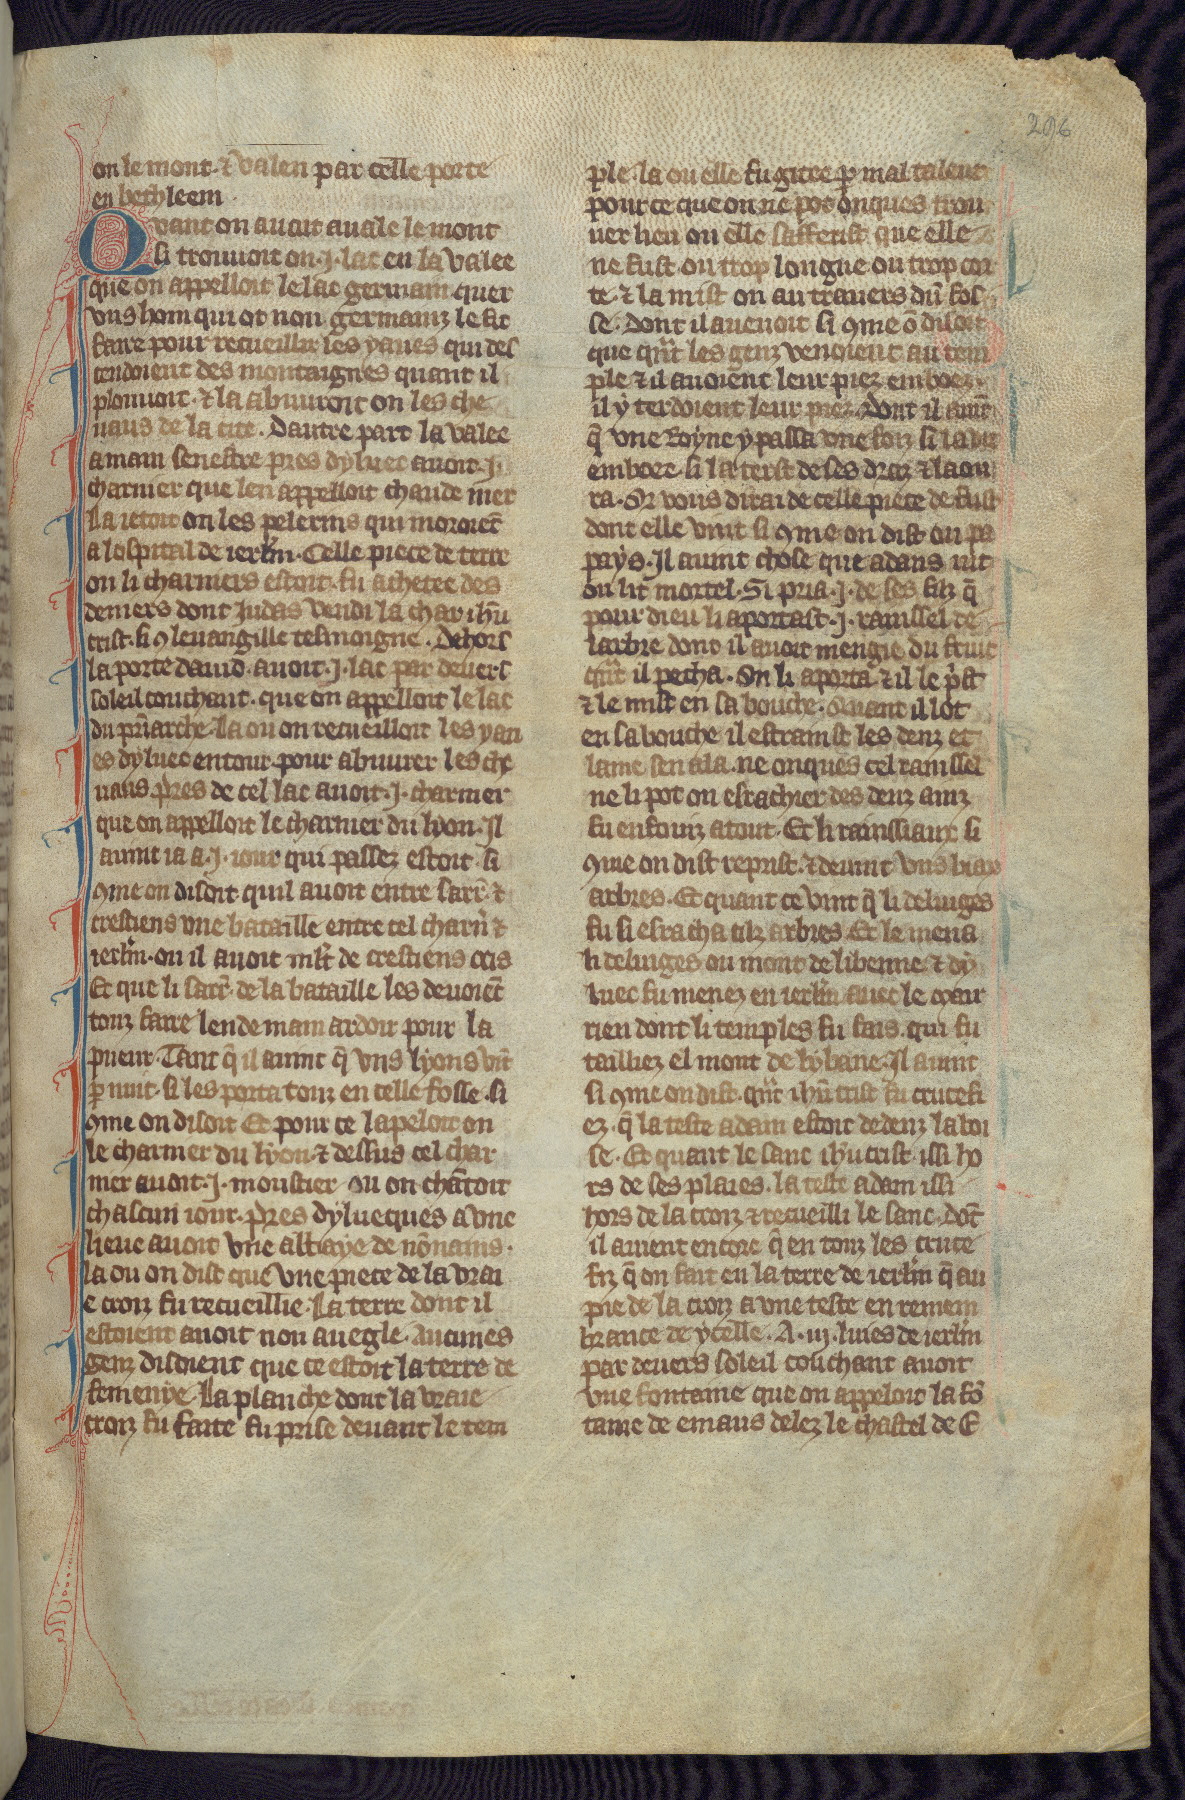 296
on le mont. ⁊ valen par celle porte
en bethleem
Quant on auoit auale le mont
si trouuoit on .j. lac en la valee
que on appelloit le lac germain. quer
vns hom qui ot non germainz le fit
faire pour recueillir les yaues qui des
cendoient des montaignes quant il
plouuoit. ⁊ la abuuroit on les che
uaus de la cite. Dautre part la valee
a main senestre pres dyluec auoit .j.
charnier que len appelloit chaude mer
La ietoit on les pelerins qui moroiẽt
a lospital de ierlm̃. Celle piece de terre
ou li charniers estoit. fu achetee des
deniers dont Judas vendi la char ihũ
crist. si ꝯ leuangille tesmoigne. Dehors
la porte dauid. auoit .j. lac par deuers
soleil couchant. que on appelloit le lac
du pr̃iarche. La ou on recueilloit les yau
es dyluec entour. pour abuurer les che
uaus pres de cel lac auoit .j. charnier
que on appelloit le charnier du lyon. Il
auint ia a .j. iour qui passez estoit. si
ꝯme on disoit. quil auoit entre sarr̃. ⁊
crestiens vne bataille entre cel charn̾ ⁊
ierlm̃. ou il auoit ml̃t de crestiens ocis
Et que li sarr̃. de la bataille les deuoiẽt
touz faire lendemain ardoir pour la
pueur. Tant q̃ il auint q̃ vns lyons vĩt
ꝑ nuit. si les porta touz en celle fosse. si
ꝯme on disoit Et pour ce lapeloit on
le charnier du lyon. ⁊ dessus cel char
nier auoit .j. moustier ou on chãtoit
chascun iour. Pres dylueques a vne
lieue auoit vne abbaye de nõnains.
la ou on dist que vne piece de la vrai
e croiz fu recueillie. La terre dont il
estoient auoit non auegle. aucunes
genz disoient que ce estoit la terre de
femenye. La planche dont la vraie
croiz fu faite fu prise deuant le tem
ple. la ou elle fu gitee ꝑ mal talent
pour ce que on ne pot onques trou
uer lieu ou elle saffetist que elle
ne fust ou trop longue ou trop cor
te. ⁊ la mist on au trauers dũ fos
se. Dont il auenoit si ꝯme õ disoit
que qñt les genz venoient au tem
ple ⁊ il auoient leur piez emboez.
il y terdoient leur piez. Dont il auĩt
q̃ vne Royne y passa vne foiz si la vit
emboee. si la terst de ses draz ⁊ laou
ra. Or vous dirai de celle piece de fust
dont elle vint si ꝯme on dist ou pa
pays. Il auint chose que adans iut
ou lit mortel. Si pria .j. de ses filz q̃
pour dieu li aportast .j. rainssel de
larbre dont il auoit mengie du fruit
qñt il pecha. On li aporta ⁊ il le pˀst
⁊ le mist en sa bouche. Quant il lot
en sa bouche il estrainst les denz et
lame sen ala. ne onques cel rainssel
ne li pot on esrachier des denz ainz
fu enfouiz atout. Et li rainssiaux si
ꝯme on dist reprist. ⁊ deuint vns biax
arbres. Et quant ce vint q̃ li deluiges
fu si esracha cilz arbres. Et le mena
li deluiges ou mont de libenne ⁊ dy
luec fu menez en ierlm̃ auec le mair
rien dont li temples fu fais. qui fu
tailliez el mont de lybane. Il auint
si ꝯme on dist. qñt ihũ crist fu crucefi
ez. q̃ la teste adam estoit dedenz la boi
se. Et quant le sanc ihũ crist. issi ho
rs de ses plaies. la teste adam issi
hors de la croiz ⁊ recueilli le sanc. dõt
il auient encore q̃ en touz les cruce
fiz q̃ on fait en la terre de ierlm̃ q̃ au
pie de la croiz a vne teste en remem
brance de ycelle. A .iij. liues de ierlm̃
par deuers soleil couchant auoit
vne fontaine que on appeloit la fõ
taine de emaus delez le chastel de E